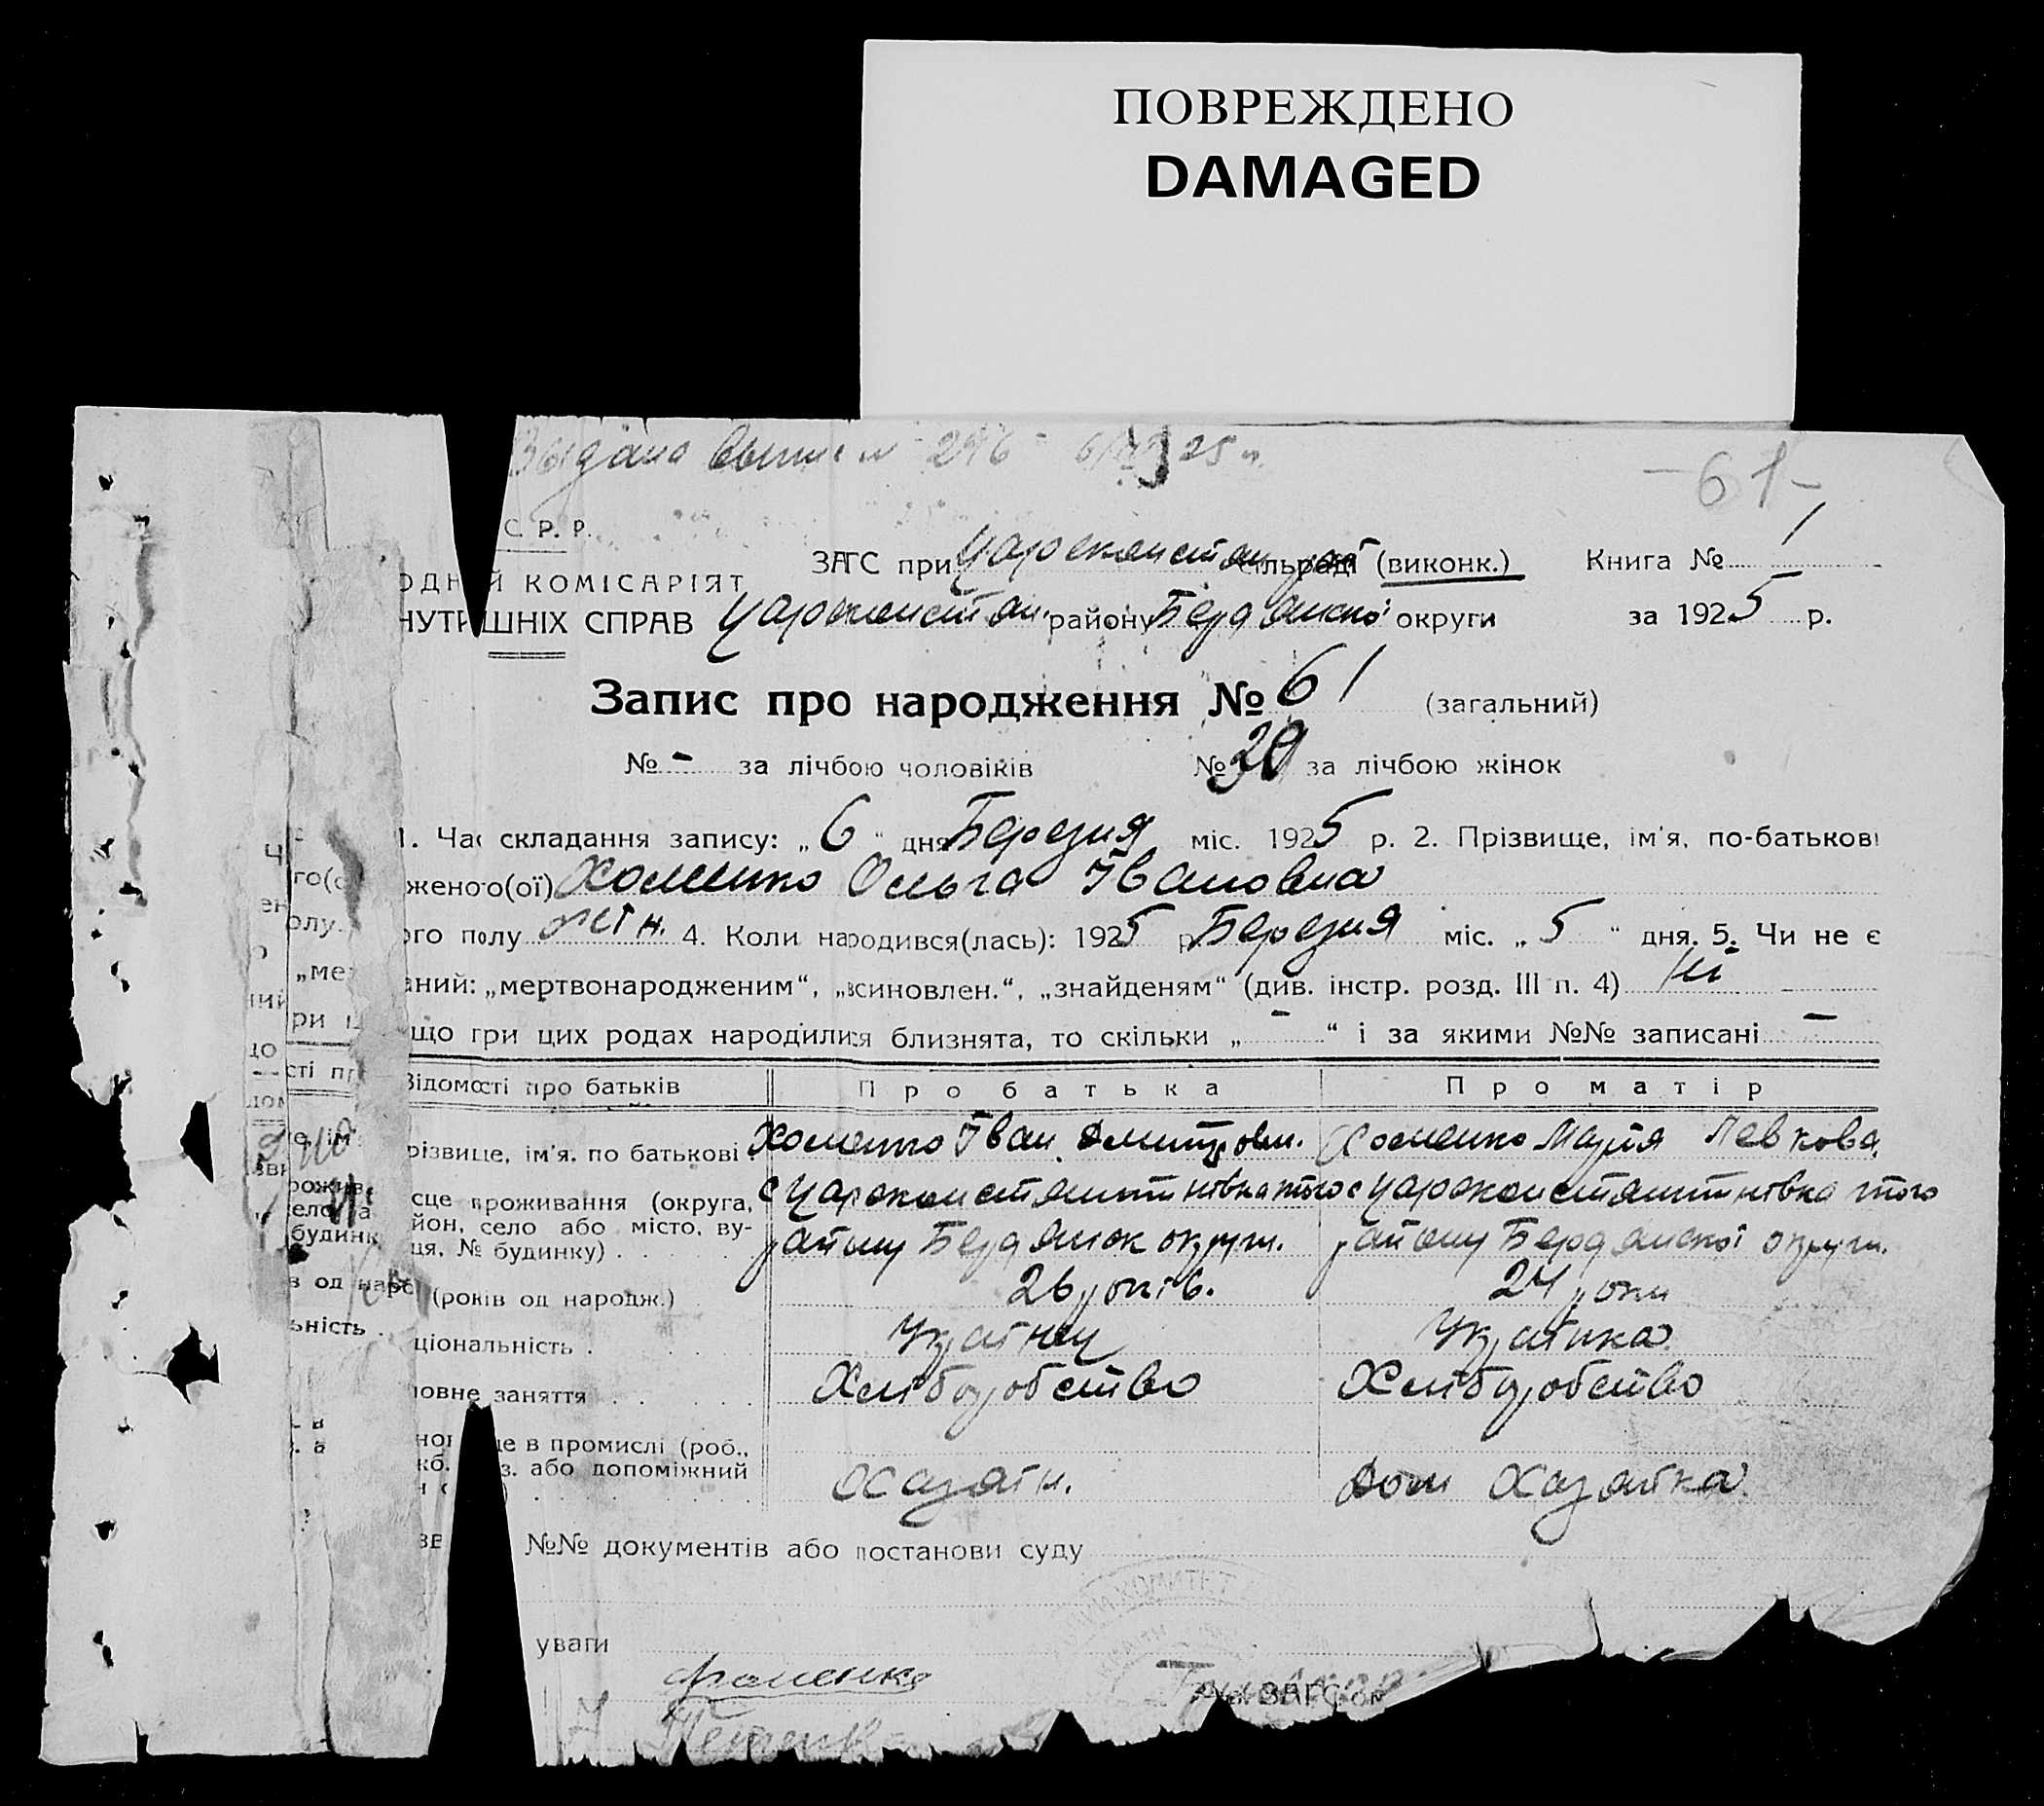 ПОВРЕЖДЕНО
DAMAGED
Выдано
25 г.
-61-
С. Р. Р.
ЗАГС при Цароконстан сільраді (виконк.) Книга № 1
ОДН Й КОМІСАРІЯТ
НУТР ШНІХ СПРАВ Цароконстан. району Бердянскої округи за 1925 р.
Запис про народження № 61 (загальний)
№ - за лічбою чоловіків № 29 за лічбою жінок
1. Час складання запису: „6“ дня Березня міс. 1925 р. 2. Прізвище, ім'я, по-батькові
женого(ої) Хоменко Ольга Івановна
ого полу жін. 4. Коли народився(лась): 1925 р. Березня міс. „5“ дня. 5. Чи не є
аний: „мертвонародженим“, „всиновлен.“, „знайденям“ (див. інстр. розд. III п. 4) Ні
що при цих родах народилися близнята, то скільки „ - “ і за якими №№ записані -
Відомості про батьків Про батька Про матір
різвище, ім'я, по батькові . Хоменко Іван Дмитров. Хоменко Марія Левкова
сце проживання (округа, с Цароконстянтинівка того с Цароконстянтинівка того
йон, село або місто, ву-
ця, № будинку) . . . . району Бердянск округи. району Бердянскої округи.
(років од народж.) 26 років. 24 роки
ціональність . Українец Українка
ловне заняття . . Хліборобство Хліборобство
це в промислі (роб.,
кб. з. або допоміжний Хазяїн. Дом Хазяйка
№№ документів або постанови суду
уваги
Хоменко
ЗАГС'ом